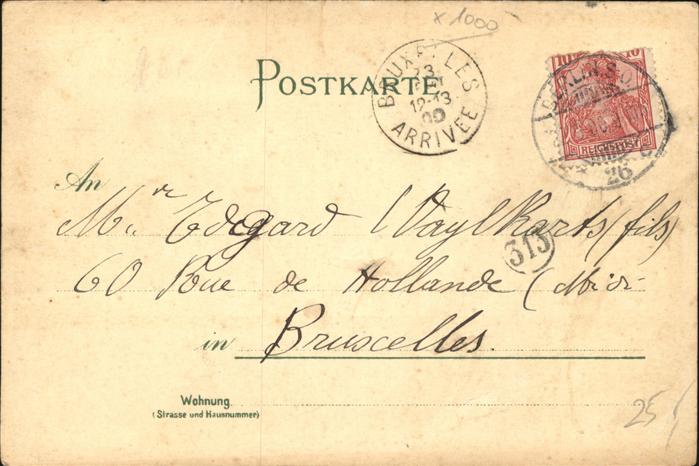 x 1000
POSTKARTE
BRUXELLES
23
12-13
00
ARRIVÉE
10 10
BERLIN S.O.
REICHSPOST
26
An
Mr. Edgard
(fils)
313
60 Rue de Hollande (Midi-
in Bruxcelles.
Wohnung
(Strasse und Hausnummer)
25